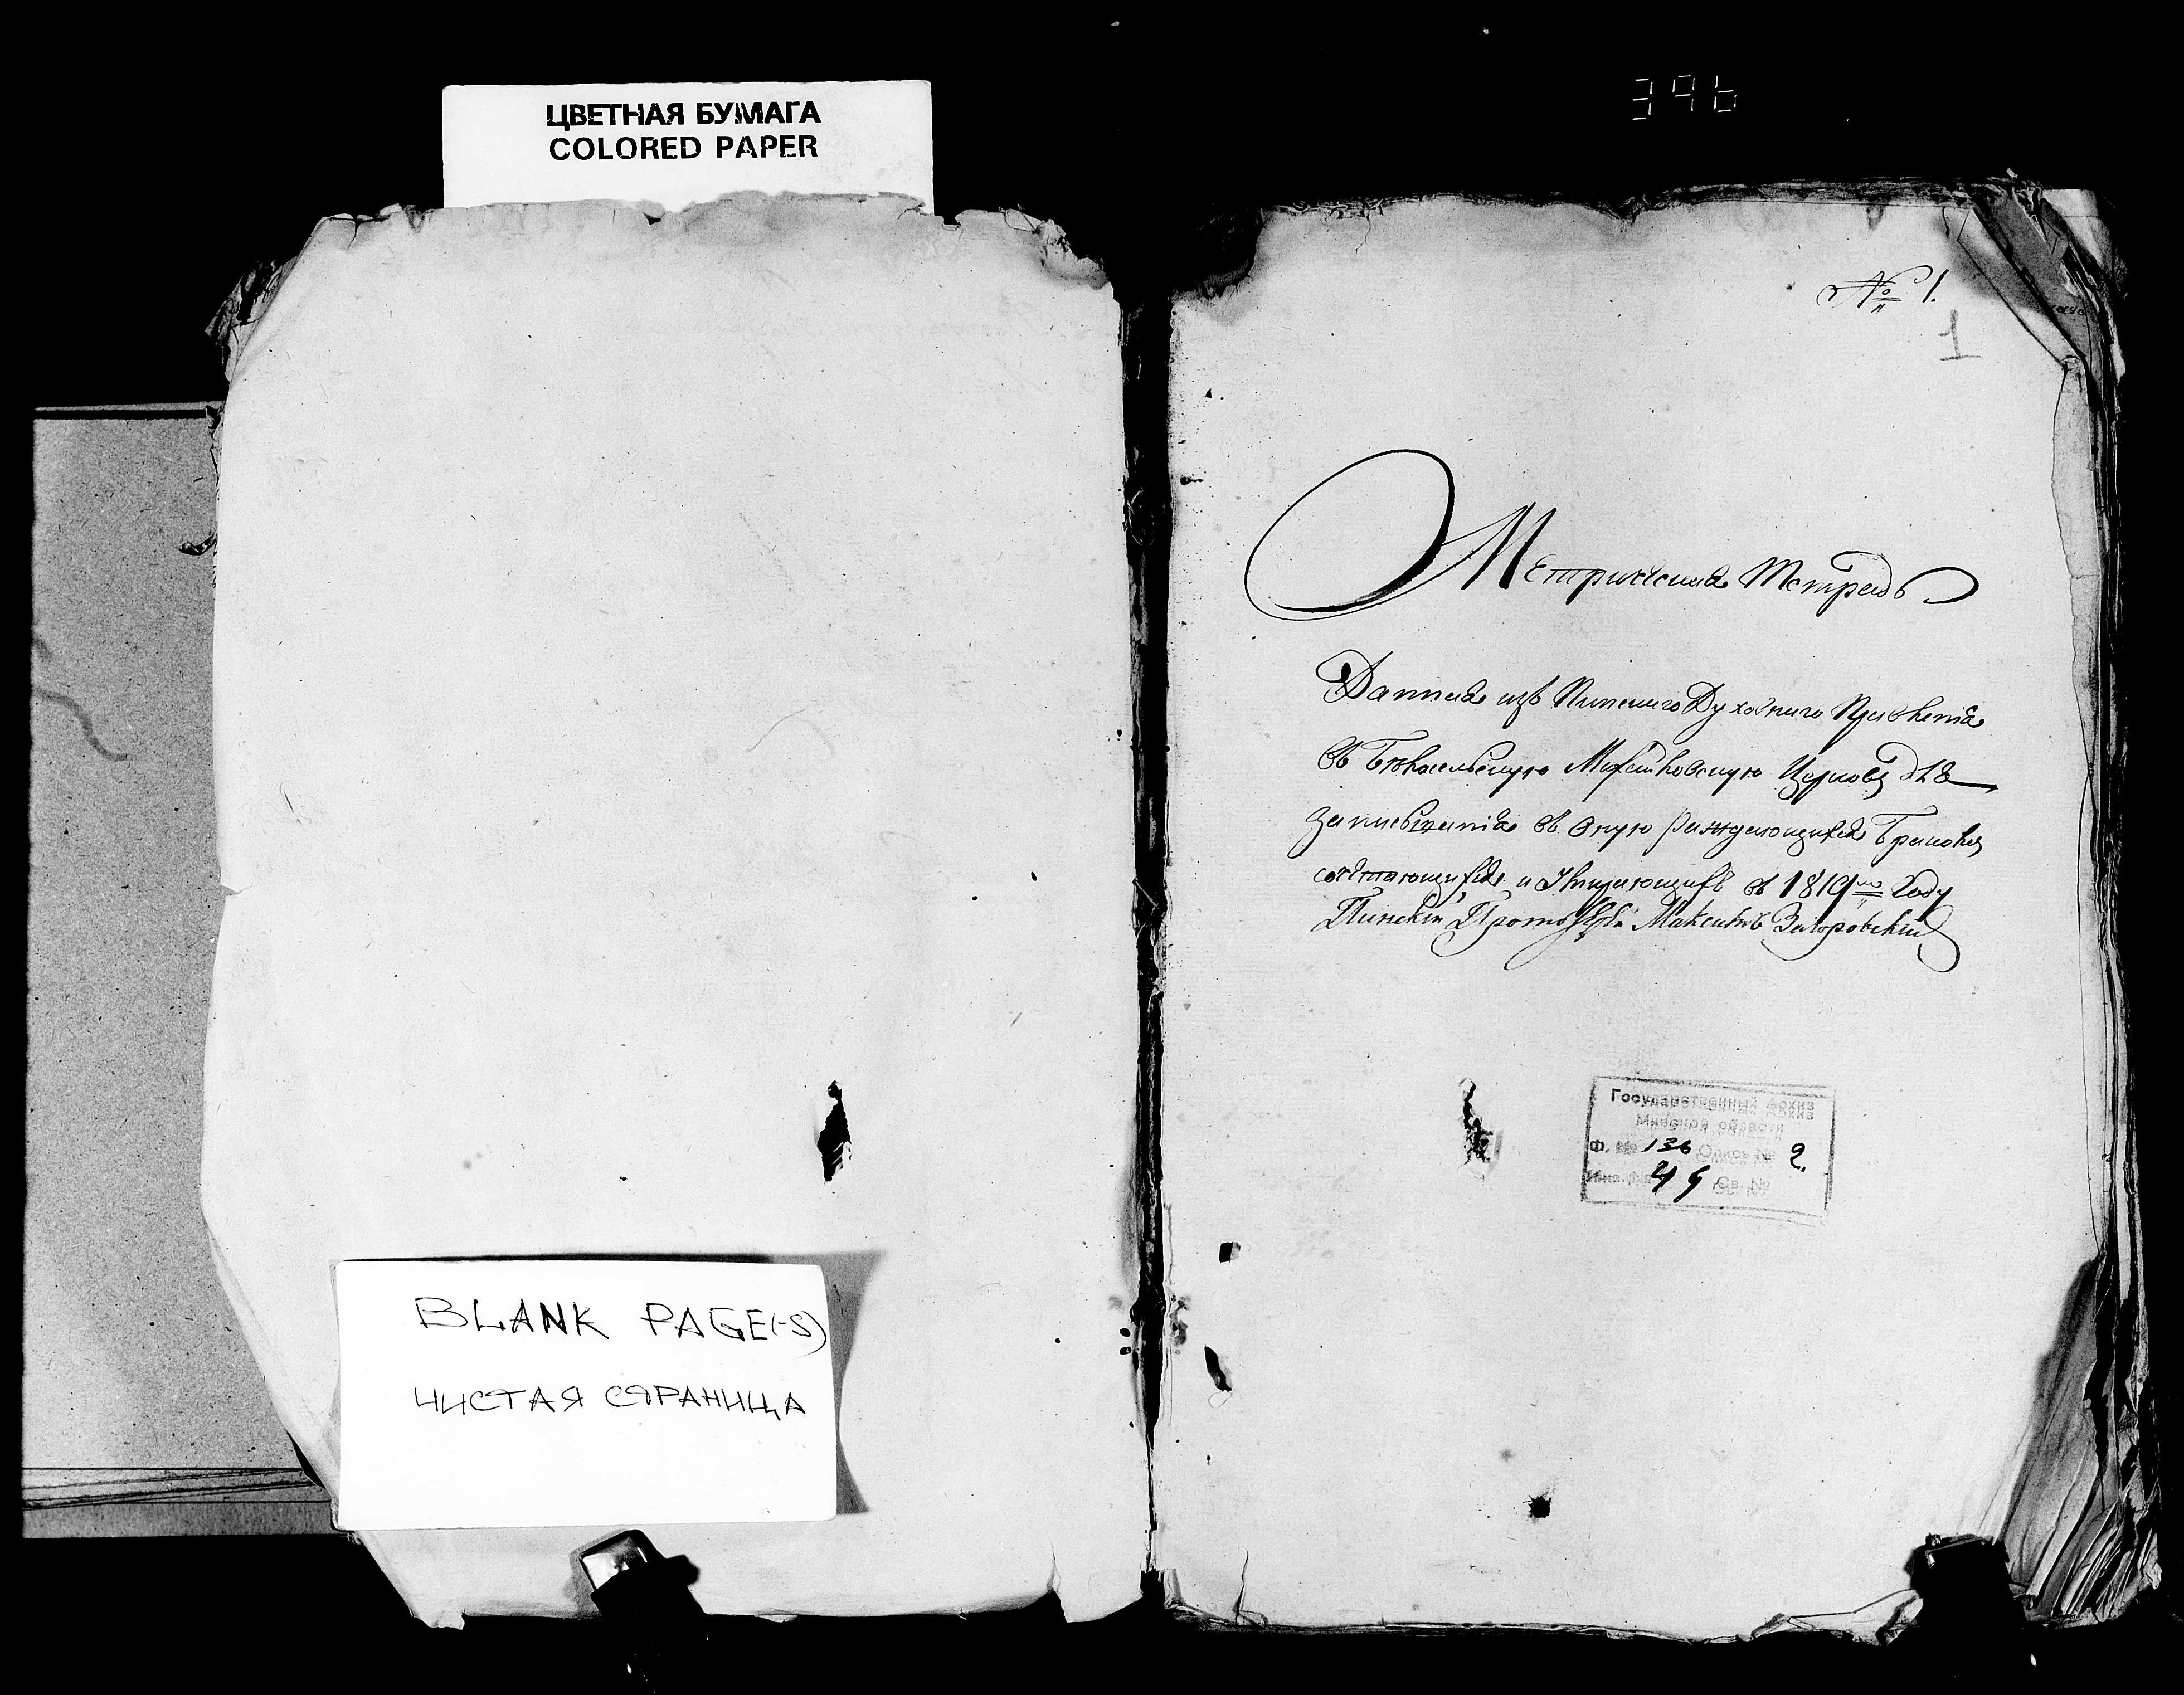 ЦВЕТНАЯ БУМАГА
COLORED PAPER
396
№ 1.
1
Метрическая Тетрадь
Данная изъ Пинскаго Духовнаго Правленія
въ Михайловскую Церковь для
записыванія въ оную раждающихся Браком
сочетающихся и Умирающихъ въ 1819мъ Году
Пинскій Протоіерей Максимъ Загоровскій
Государственный Архив
Минской области
Ф. № 136 Опись № 2.
Св. №
BLANK PAGE(-S)
ЧИСТАЯ СТРАНИЦА